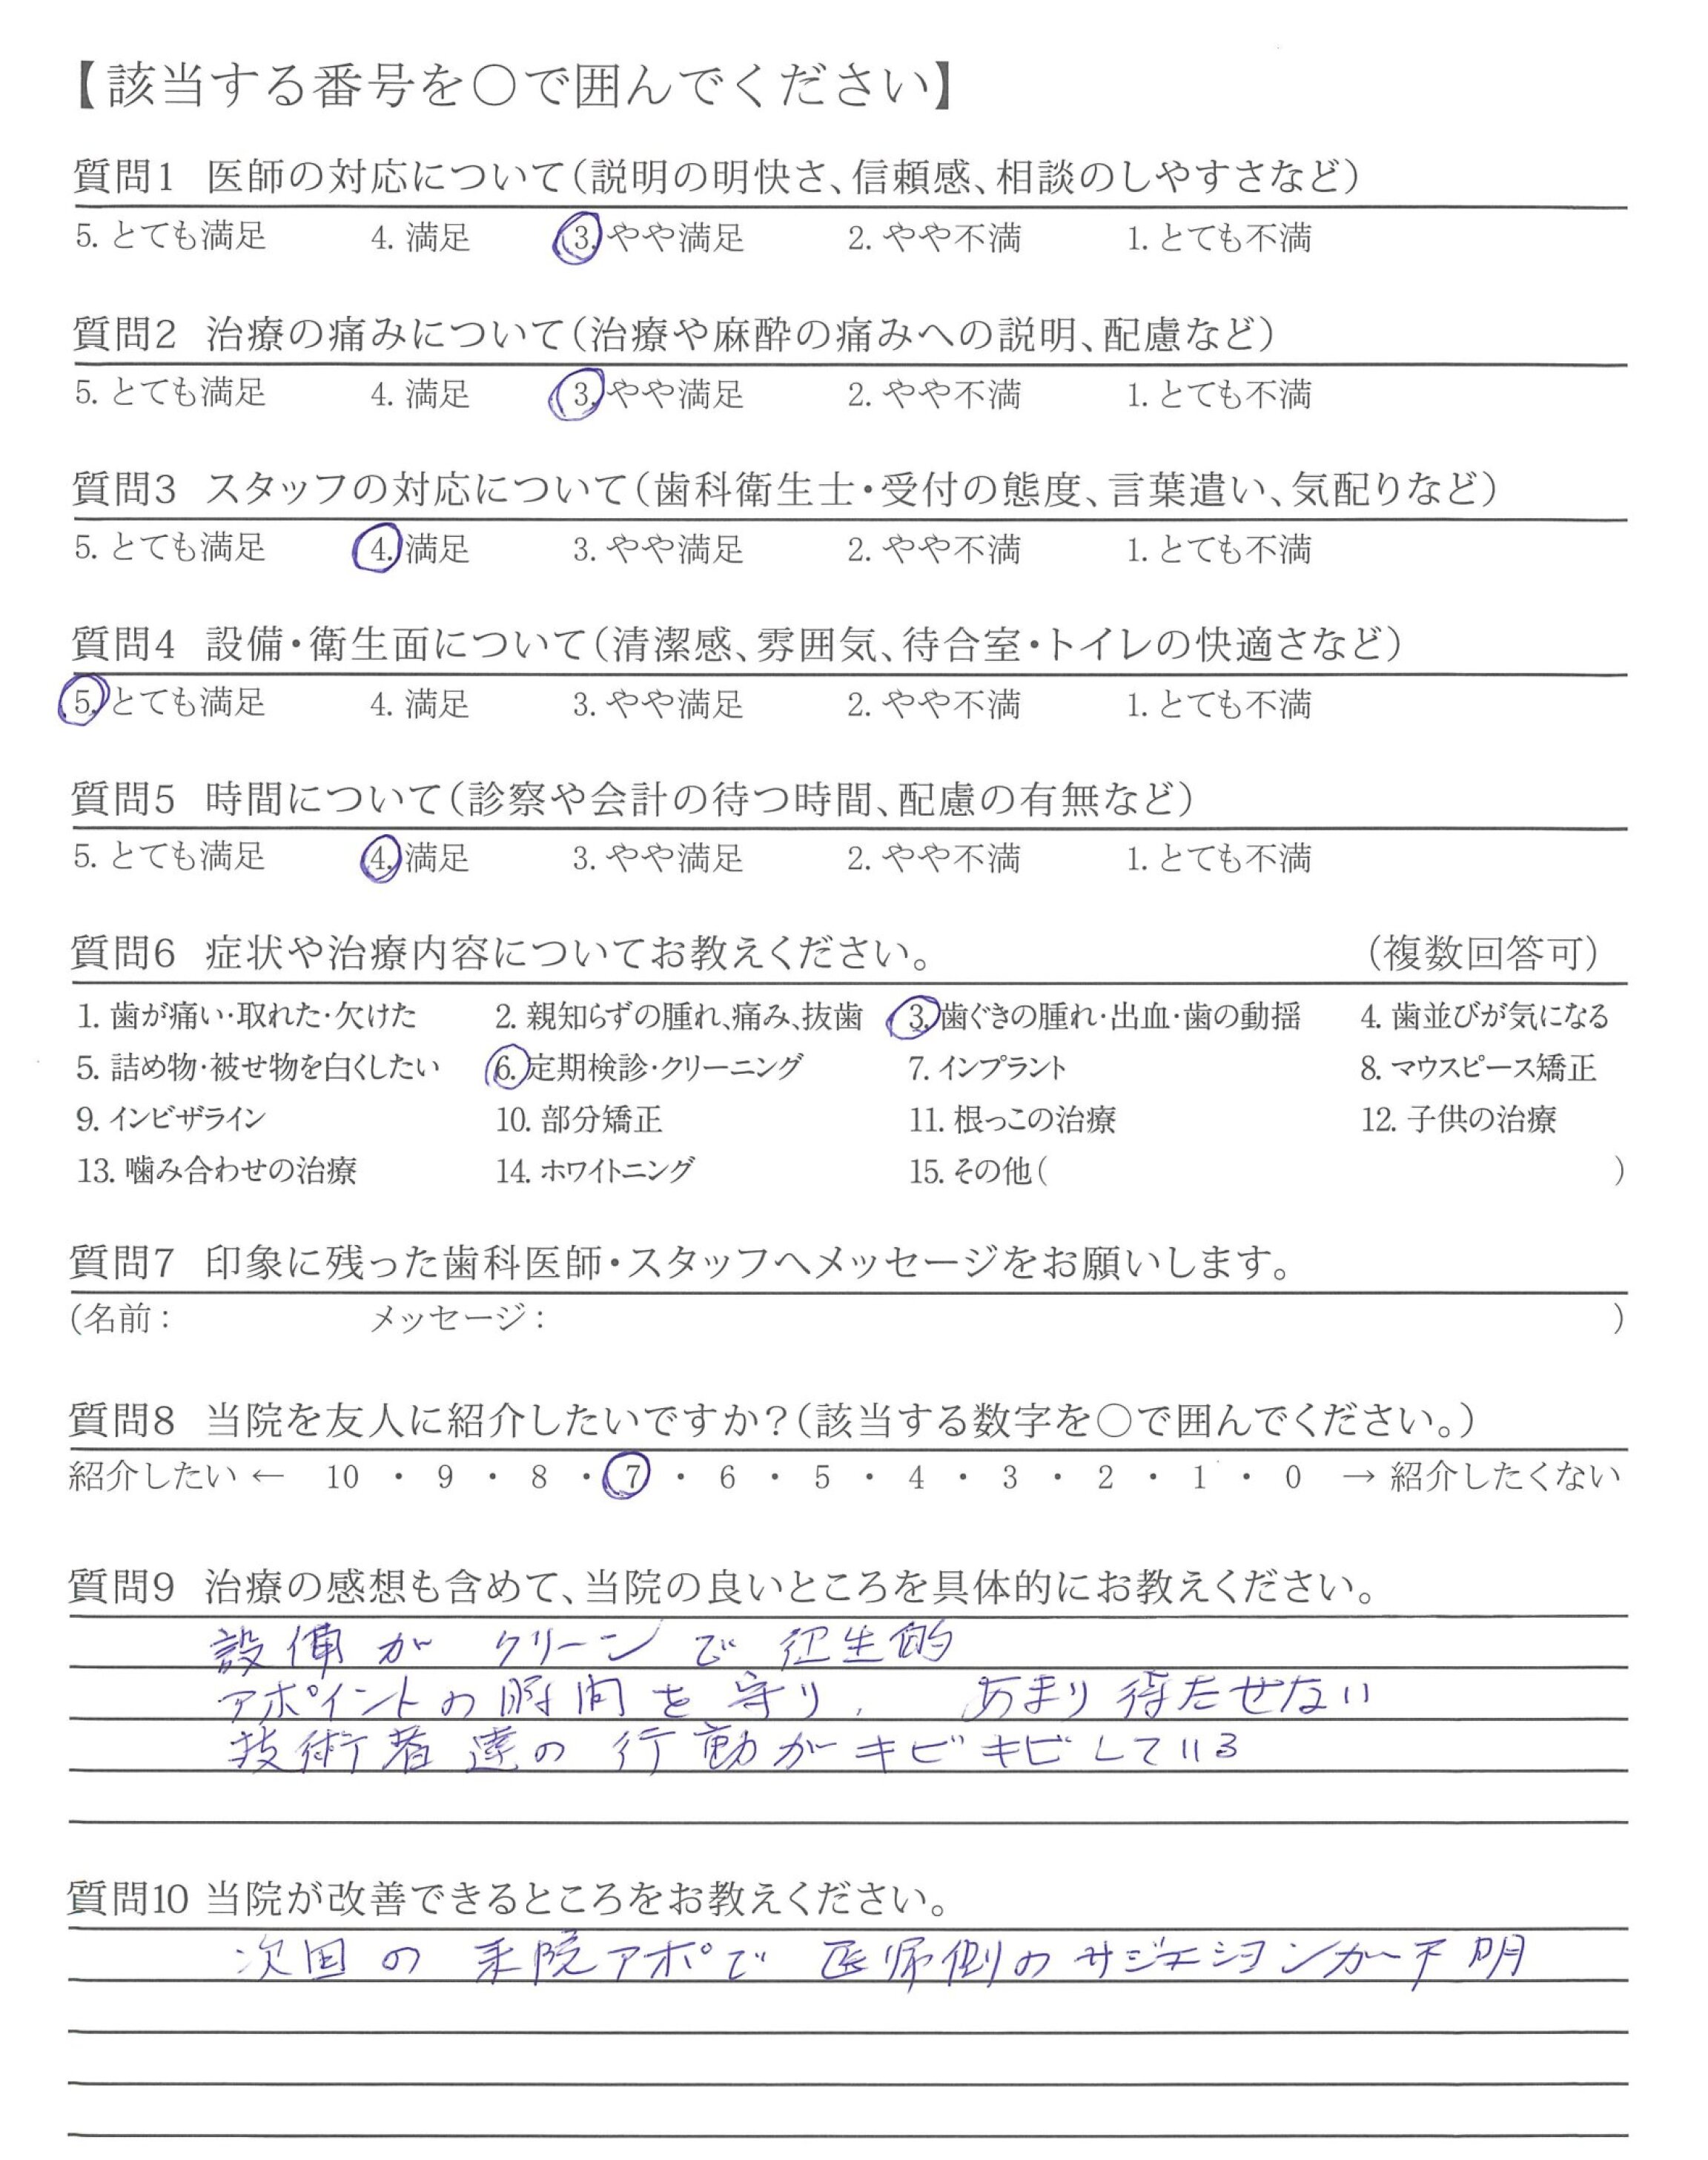 【該当する番号を○で囲んでください】
質問1 医師の対応について(説明の明快さ、信頼感、相談のしやすさなど)
5. とても満足 4. 満足 3. やや満足 2. やや不満 1. とても不満
質問2 治療の痛みについて(治療や麻酔の痛みへの説明、配慮など)
5. とても満足 4. 満足 3. やや満足 2. やや不満 1. とても不満
質問3 スタッフの対応について(歯科衛生士・受付の態度、言葉遣い、気配りなど)
5. とても満足 4. 満足 3. やや満足 2. やや不満 1. とても不満
質問4 設備・衛生面について(清潔感、雰囲気、待合室・トイレの快適さなど)
5. とても満足 4. 満足 3. やや満足 2. やや不満 1. とても不満
質問5 時間について(診察や会計の待つ時間、配慮の有無など)
5. とても満足 4. 満足 3. やや満足 2. やや不満 1. とても不満
質問6 症状や治療内容についてお教えください。 (複数回答可)
1. 歯が痛い・取れた・欠けた 2. 親知らずの腫れ、痛み、抜歯 3. 歯ぐきの腫れ・出血・歯の動揺 4. 歯並びが気になる
5. 詰め物・被せ物を白くしたい 6. 定期検診・クリーニング 7. インプラント 8. マウスピース矯正
9. インビザライン 10. 部分矯正 11. 根っこの治療 12. 子供の治療
13. 噛み合わせの治療 14. ホワイトニング 15. その他( )
質問7 印象に残った歯科医師・スタッフへメッセージをお願いします。
(名前: メッセージ: )
質問8 当院を友人に紹介したいですか?(該当する数字を○で囲んでください。)
紹介したい ← 10 ・ 9 ・ 8 ・ 7 ・ 6 ・ 5 ・ 4 ・ 3 ・ 2 ・ 1 ・ 0 → 紹介したくない
質問9 治療の感想も含めて、当院の良いところを具体的にお教えください。
設備が クリーンで 衛生的
アポイントの時間を守り、 あまり待たせない
技術者達の行動がキビキビしている
質問10 当院が改善できるところをお教えください。
次回の来院アポで 医師側のサジェションが不明